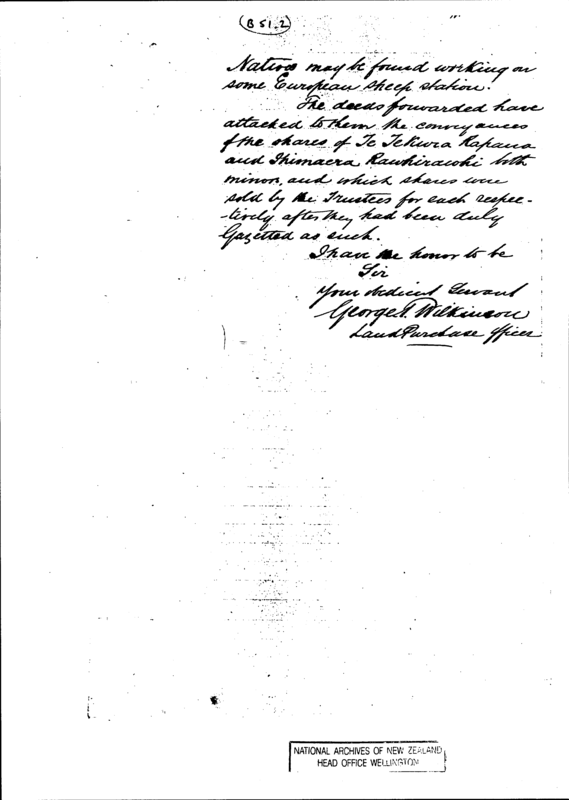 (B 51.2)
Natives may be found working on
some European sheep station.
The deeds forwarded have
attached to them the conveyances
of the shares of Te Tekura Kapana
and Ihimaera Rawhirawhi both
minors, and which shares were
sold by the Trustees for each respec-
-tively after they had been duly
Gazetted as such.
I have the honor to be
Sir
Your obedient Servant
George T. Wilkinson
Land Purchase Officer
NATIONAL ARCHIVES OF NEW ZEALAND
HEAD OFFICE WELLINGTON